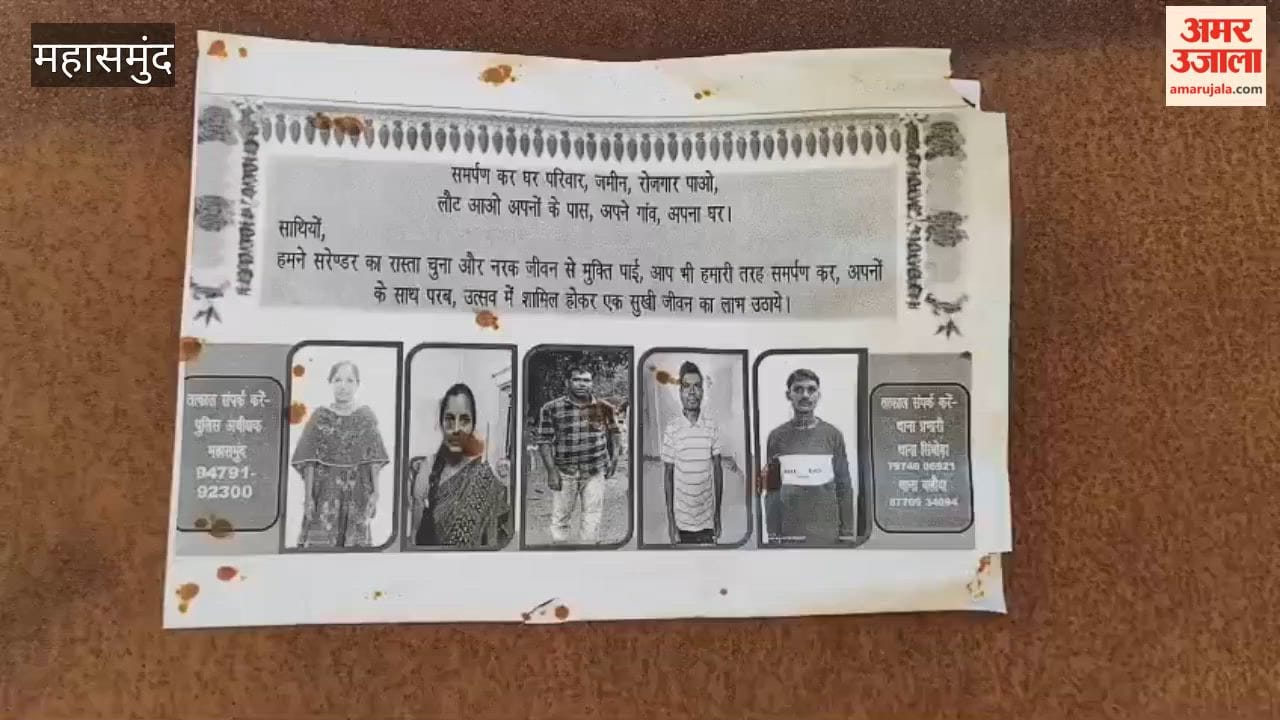 महासमुंद
अमर
उजाला
amarujala.com
समर्पण कर घर परिवार, जमीन, रोजगार पाओ,
लौट आओ अपनों के पास, अपने गांव, अपना घर।
साथियों,
हमने सरेण्डर का रास्ता चुना और नरक जीवन से मुक्ति पाई, आप भी हमारी तरह समर्पण कर, अपनों
के साथ परब, उत्सव में शामिल होकर एक सुखी जीवन का लाभ उठाये।
तत्काल संपर्क करें-
पुलिस अधीक्षक
महासमुंद
94791-
92300
तत्काल संपर्क करें-
थाना प्रभारी
थाना
थाना